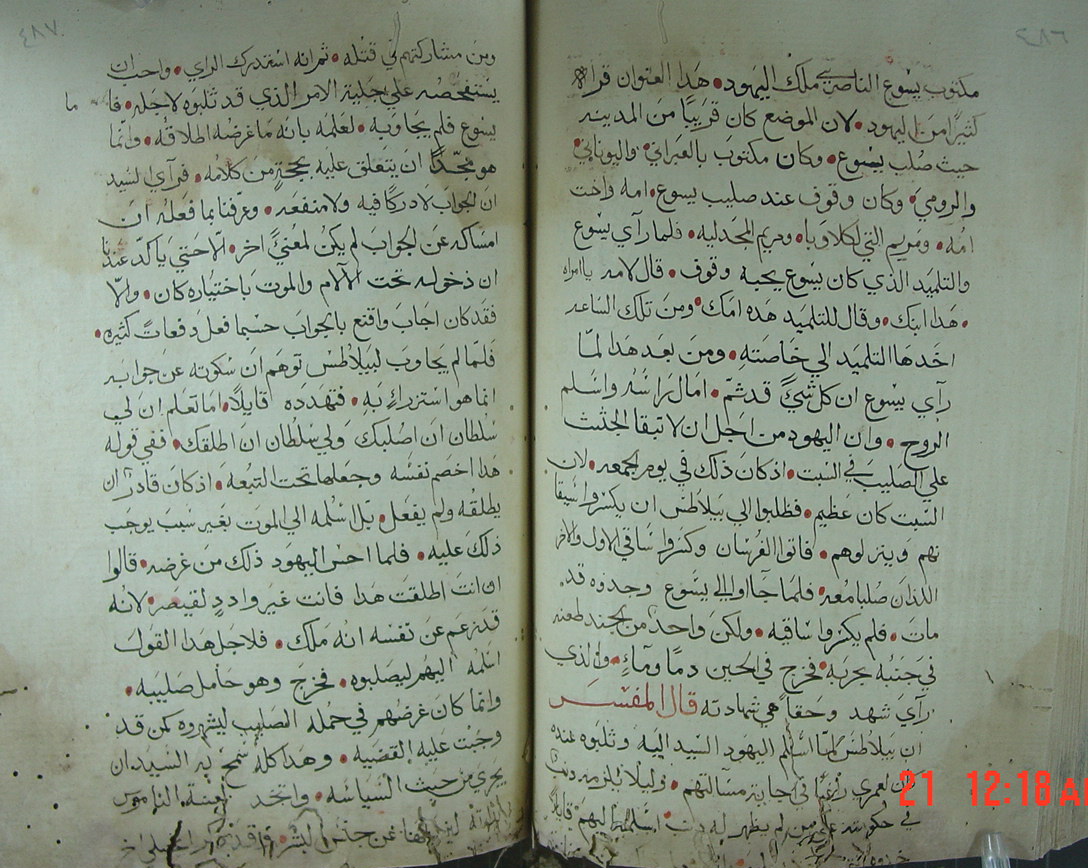 ٤٨٦
مكتوب يسوع الناصري ملك اليهود • هذا العنوان قراه
كثيرًا من اليهود • لان الموضع كان قريبًا من المدينه
حيث صلب يسوع • وكان مكتوب بالعبراني واليوناني
والرومي • وكان وقوف عند صليب يسوع • امه واخت
امه • ومريم التي لكلاوبا • ومريم المجدليه • فلما راي يسوع
والتلميد الذي كان يسوع يحبه وقوف • قال لامه ياامراه
• هدا ابنك • وقال للتلميد هده امك • ومن تلك الساعه
اخدها التلميد الي خاصته • ومن بعد هدا لمّا
رآي يسوع ان كل شيً قد تم • امال براسه واسلم
الروح • وان اليهود من اجل ان لا تبقا الجثث
علي الصليب في السبت • اذ كان ذلك في يوم الجمعه • لان
السبت كان عظيم • فطلبوا الي بيلاطس ان يكسروا سيقا
نهم وينزلوهم • فاتوا الفرسان وكسروا ساقي الاول والاخر
اللذان صلبا معه • فلما جااوا الي يسوع وجدوه قد
مات • فلم يكسروا ساقيه • ولكن واحدٌ من الجند طعنه
في جنبه بحربه • فخرج في الحين دمًا ومآءٍ • والذي
رآي شهد وحقاً هي شهادته قال المفسر
ان بيلاطس لمّا اسلم اليهود السيد اليه وثلبوه عنده
كان لعمري راغبًا في اجابة مسالتهم • وليلا يلزمه دنب
في حكومته علي من لم يظهر له اسلمه اليهم قايلاً
٤٨٧
ومن مشاركتهم في قتله • ثم انه استدرك الراي • واحب ان
يستفحصه علي جلية الامر الذي قد ثلبوه لاجله • فاما
يسوع فلم يجاوبه • لعلمه بانه ما غرضه اطلاقه • وانما
هو مجدًا ان يتعلق عليه بحجةٍ من كلامه • فرآي السيد
ان الجواب لا دركًا فيه ولا منفعه • وعرفنا بما فعله ان
امساكه عن الجواب لم يكن لمعنيً اخر • الّا حتي يتاكّد عندنا
ان دخوله تحت الآلام والموت باختياره كان • والّا
فقد كان اجاب واقنع بالجواب حسبما فعل دفعاتً كثيره •
فلمّا لم يجاوب لبيلاطس توهم ان سكوته عن جوابه
انما هو استزراءٍ به • فتهدده قايلاً • اما تعلم ان لي
سلطان ان اصلبك ولي سلطان ان اطلقك • ففي قوله
هدا اخصم نفسه وجعلها تحت التبعه • اذ كان قادر ان
يطلقه ولم يفعل • بل اسلمه الي الموت بغير سبب يوجب
ذلك عليه • فلما احس اليهود ذلك من غرضه • قالوا
ان انت اطلقت هدا فانت غير وادد لقيصر • لانه
قد زعم عن نفسه انه ملك • فلاجل هدا القول
اسلمه اليهم ليصلبوه • فخرج وهو حامل صليبه •
وانما كان غرضهم في حمله الصليب ليشهروه كمن قد
وجبت عليه القضيه • وهدا كله سمح به السيد ان
يجري من حيث السياسه • واتخد لعنة الناموس